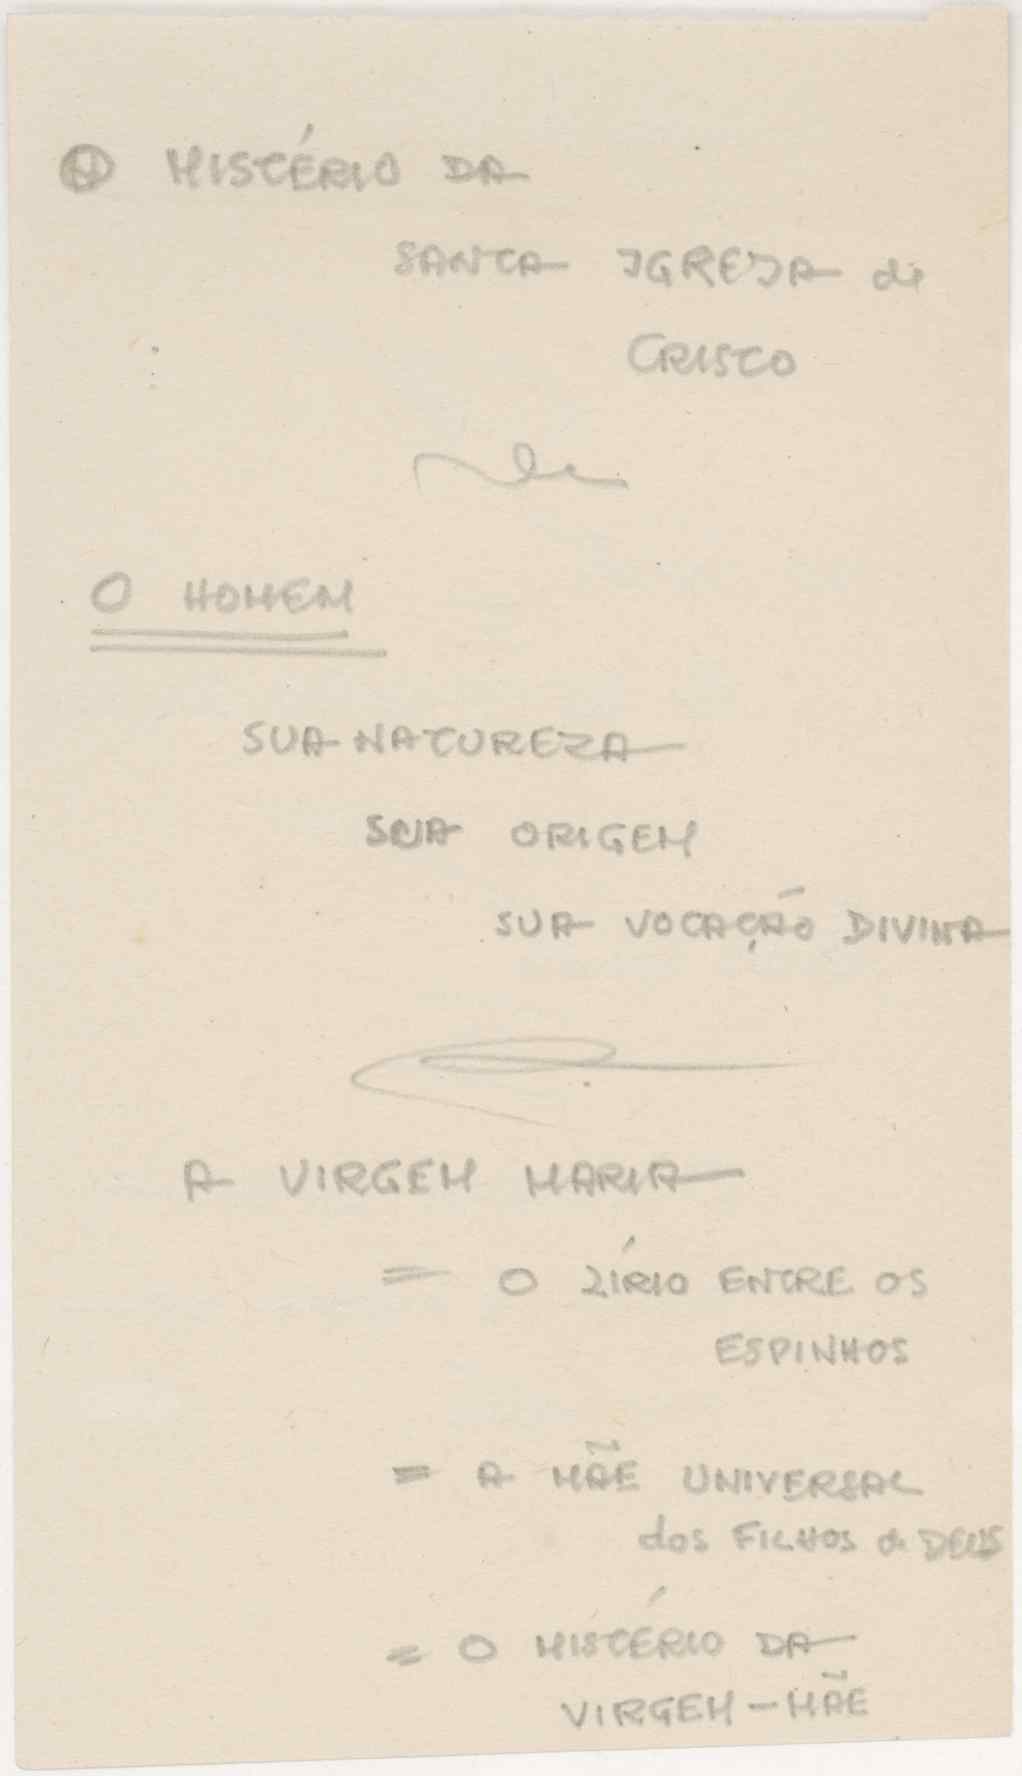 O MISTÉRIO DA
SANTA IGREJA de
CRISTO
O HOMEM
SUA NATUREZA
SUA ORIGEM
SUA VOCAÇÃO DIVINA
A VIRGEM MARIA
= O LÍRIO ENTRE OS
ESPINHOS
= A MÃE UNIVERSAL
dos FILHOS de DEUS
= O MISTÉRIO DA
VIRGEM-MÃE